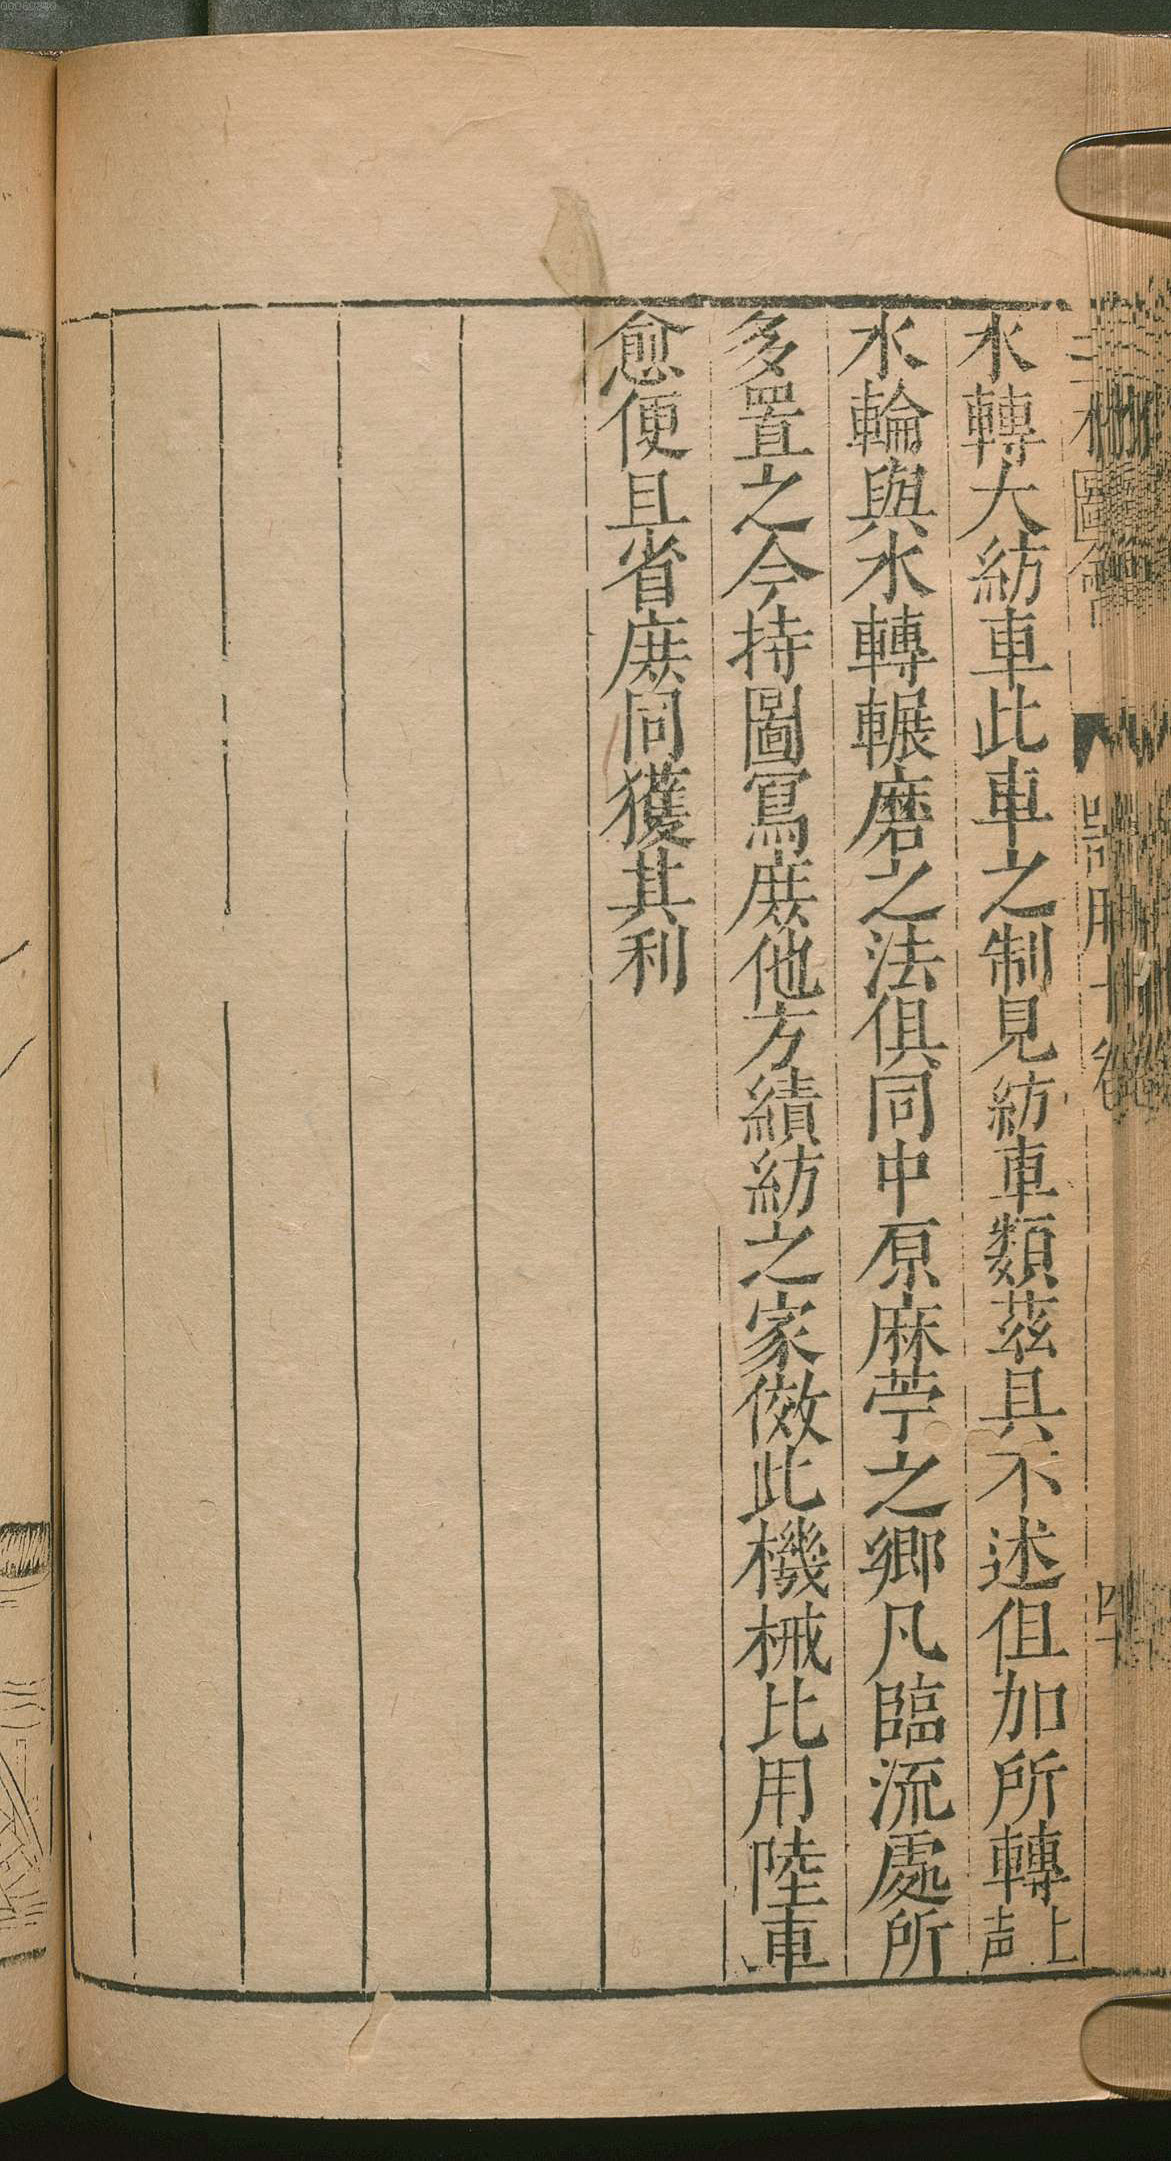 水轉大紡車此車之制見紡車類茲具不述但加所轉上声
水輪與水轉輾磨之法俱同中原麻苧之鄉凡臨流處所
多置之今持圖寫庶他方績紡之家傚此機械比用陸車
愈便且省庶同獲其利